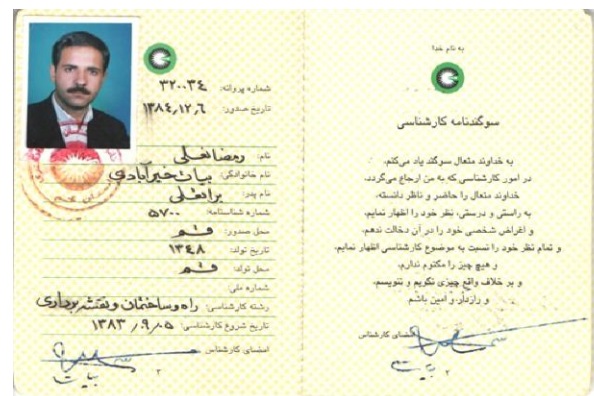 به نام خدا
سوگندنامه کارشناسی
به خداوند متعال سوگند یاد می‌کنم،
در امور کارشناسی که به من ارجاع می‌گردد،
خداوند متعال را حاضر و ناظر دانسته،
به راستی و درستی، نظر خود را اظهار نمایم،
و اغراض شخصی خود را در آن دخالت ندهم،
و تمام نظر خود را نسبت به موضوع کارشناسی اظهار نمایم،
و هیچ چیز را مکتوم ندارم،
و بر خلاف واقع چیزی نگویم و ننویسم،
و رازدار و امین باشم
امضای کارشناس
۲
شماره پروانه: ۳۲۰۰۳۴
تاریخ صدور: ۱۳۸۴,۱۲,۶
نام: رمضانعلی
نام خانوادگی: بیات خیرآبادی
نام پدر: براتعلی
شماره شناسنامه: ۵۷۰۰
محل صدور: قم
تاریخ تولد: ۱۳۴۸
محل تولد: قم
شماره ملی:
رشته کارشناسی: راه و ساختمان و نقشه برداری
تاریخ شروع کارشناسی: ۱۳۸۳,۹,۰۵
امضای کارشناس
۲